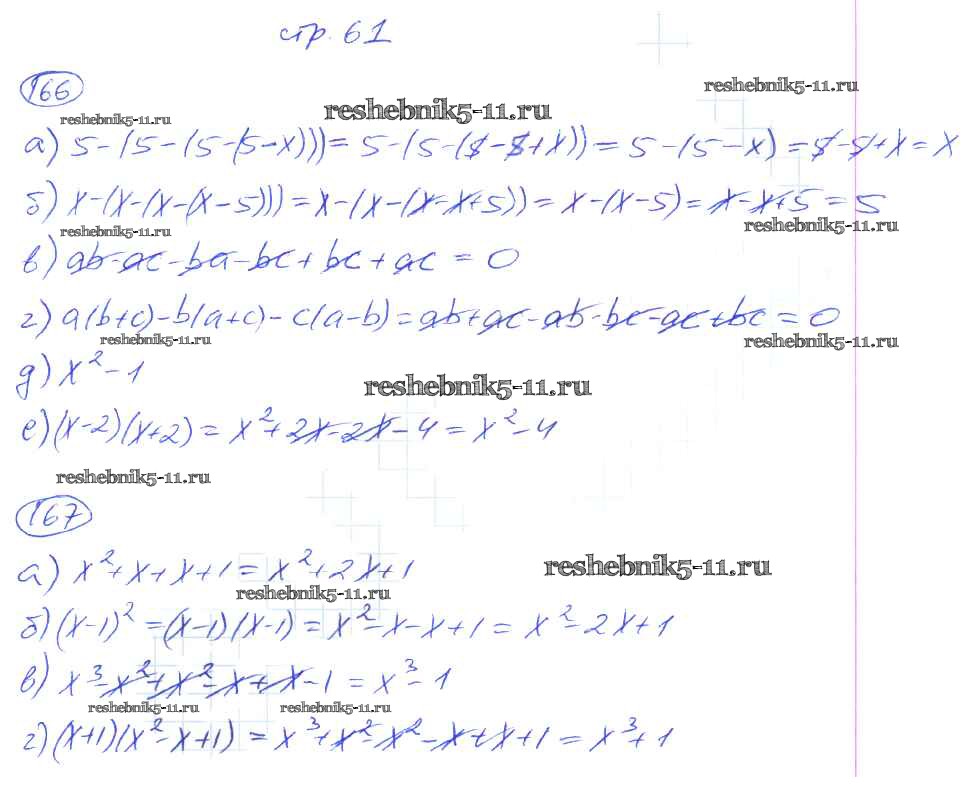 стр. 61
166
reshebnik5-11.ru
reshebnik5-11.ru
reshebnik5-11.ru
а) 5-(5-(5-(5-x)))=5-(5-(5-5+x))=5-(5-x)=5-5+x=x
б) x-(x-(x-(x-5)))=x-(x-(x-x+5))=x-(x-5)=x-x+5=5
reshebnik5-11.ru
reshebnik5-11.ru
в) ab-ac-ba-bc+bc+ac=0
г) a(b+c)-b(a+c)-c(a-b)=ab+ac-ab-bc-ac+bc=0
reshebnik5-11.ru
reshebnik5-11.ru
д) x²-1
reshebnik5-11.ru
е) (x-2)(x+2)=x²+2x-2x-4=x²-4
reshebnik5-11.ru
167
а) x²+x+x+1=x²+2x+1
reshebnik5-11.ru
reshebnik5-11.ru
б) (x-1)²=(x-1)(x-1)=x²-x-x+1=x²-2x+1
в) x³-x²+x²-x+x-1=x³-1
reshebnik5-11.ru
reshebnik5-11.ru
г) (x+1)(x²-x+1)=x³+x²-x²-x+x+1=x³+1